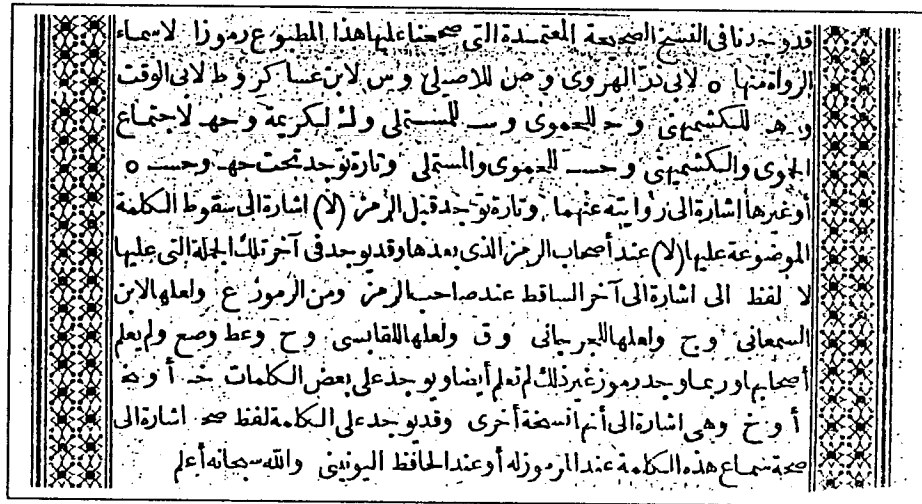 قد وجدنا في النسخ الصحيحة المعتمدة التي صححنا عليها هذا المطبوع رموزا لاسماء
الرواة منها ه لابي ذر الهروى و ص للاصيلى و س لابن عساكر و ط لابى الوقت
و هـ للكشميهنى و حـ للحموى و ســ للمستملى و ك لكريمة و حهـ لاجتماع
الحموى والكشميهنى و حســ للحموى والمستملى وتارة توجد تحت حهـ وحســ ه
أوغيرها اشارة الى روايته عنهما وتارة توجد قبل الرمز (لا) اشارة الى سقوط الكلمة
الموضوعة عليها (لا) عند أصحاب الرمز الذى بعدها وقد يوجد فى آخر تلك الجملة التى عليها
لا لفظ الى اشارة الى آخر الساقط عند صاحب الرمز ومن الرموز ع ولعلها لابن
السمعانى و ج ولعلها للجرجانى و ق ولعلها للقابسى و ح وعط وصع ولم يعلم
أصحابها وربما وجد رموز غير ذلك لم تعلم أيضا ويوجد على بعض الكلمات خـ أو نخـ
أو خ وهى اشارة الى أنها نسخة أخرى وقد يوجد على الكلمة لفظ صحـ اشارة الى
صحة سماع هذه الكلمة عند المرموز له أو عند الحافظ اليونينى والله سبحانه أعلم